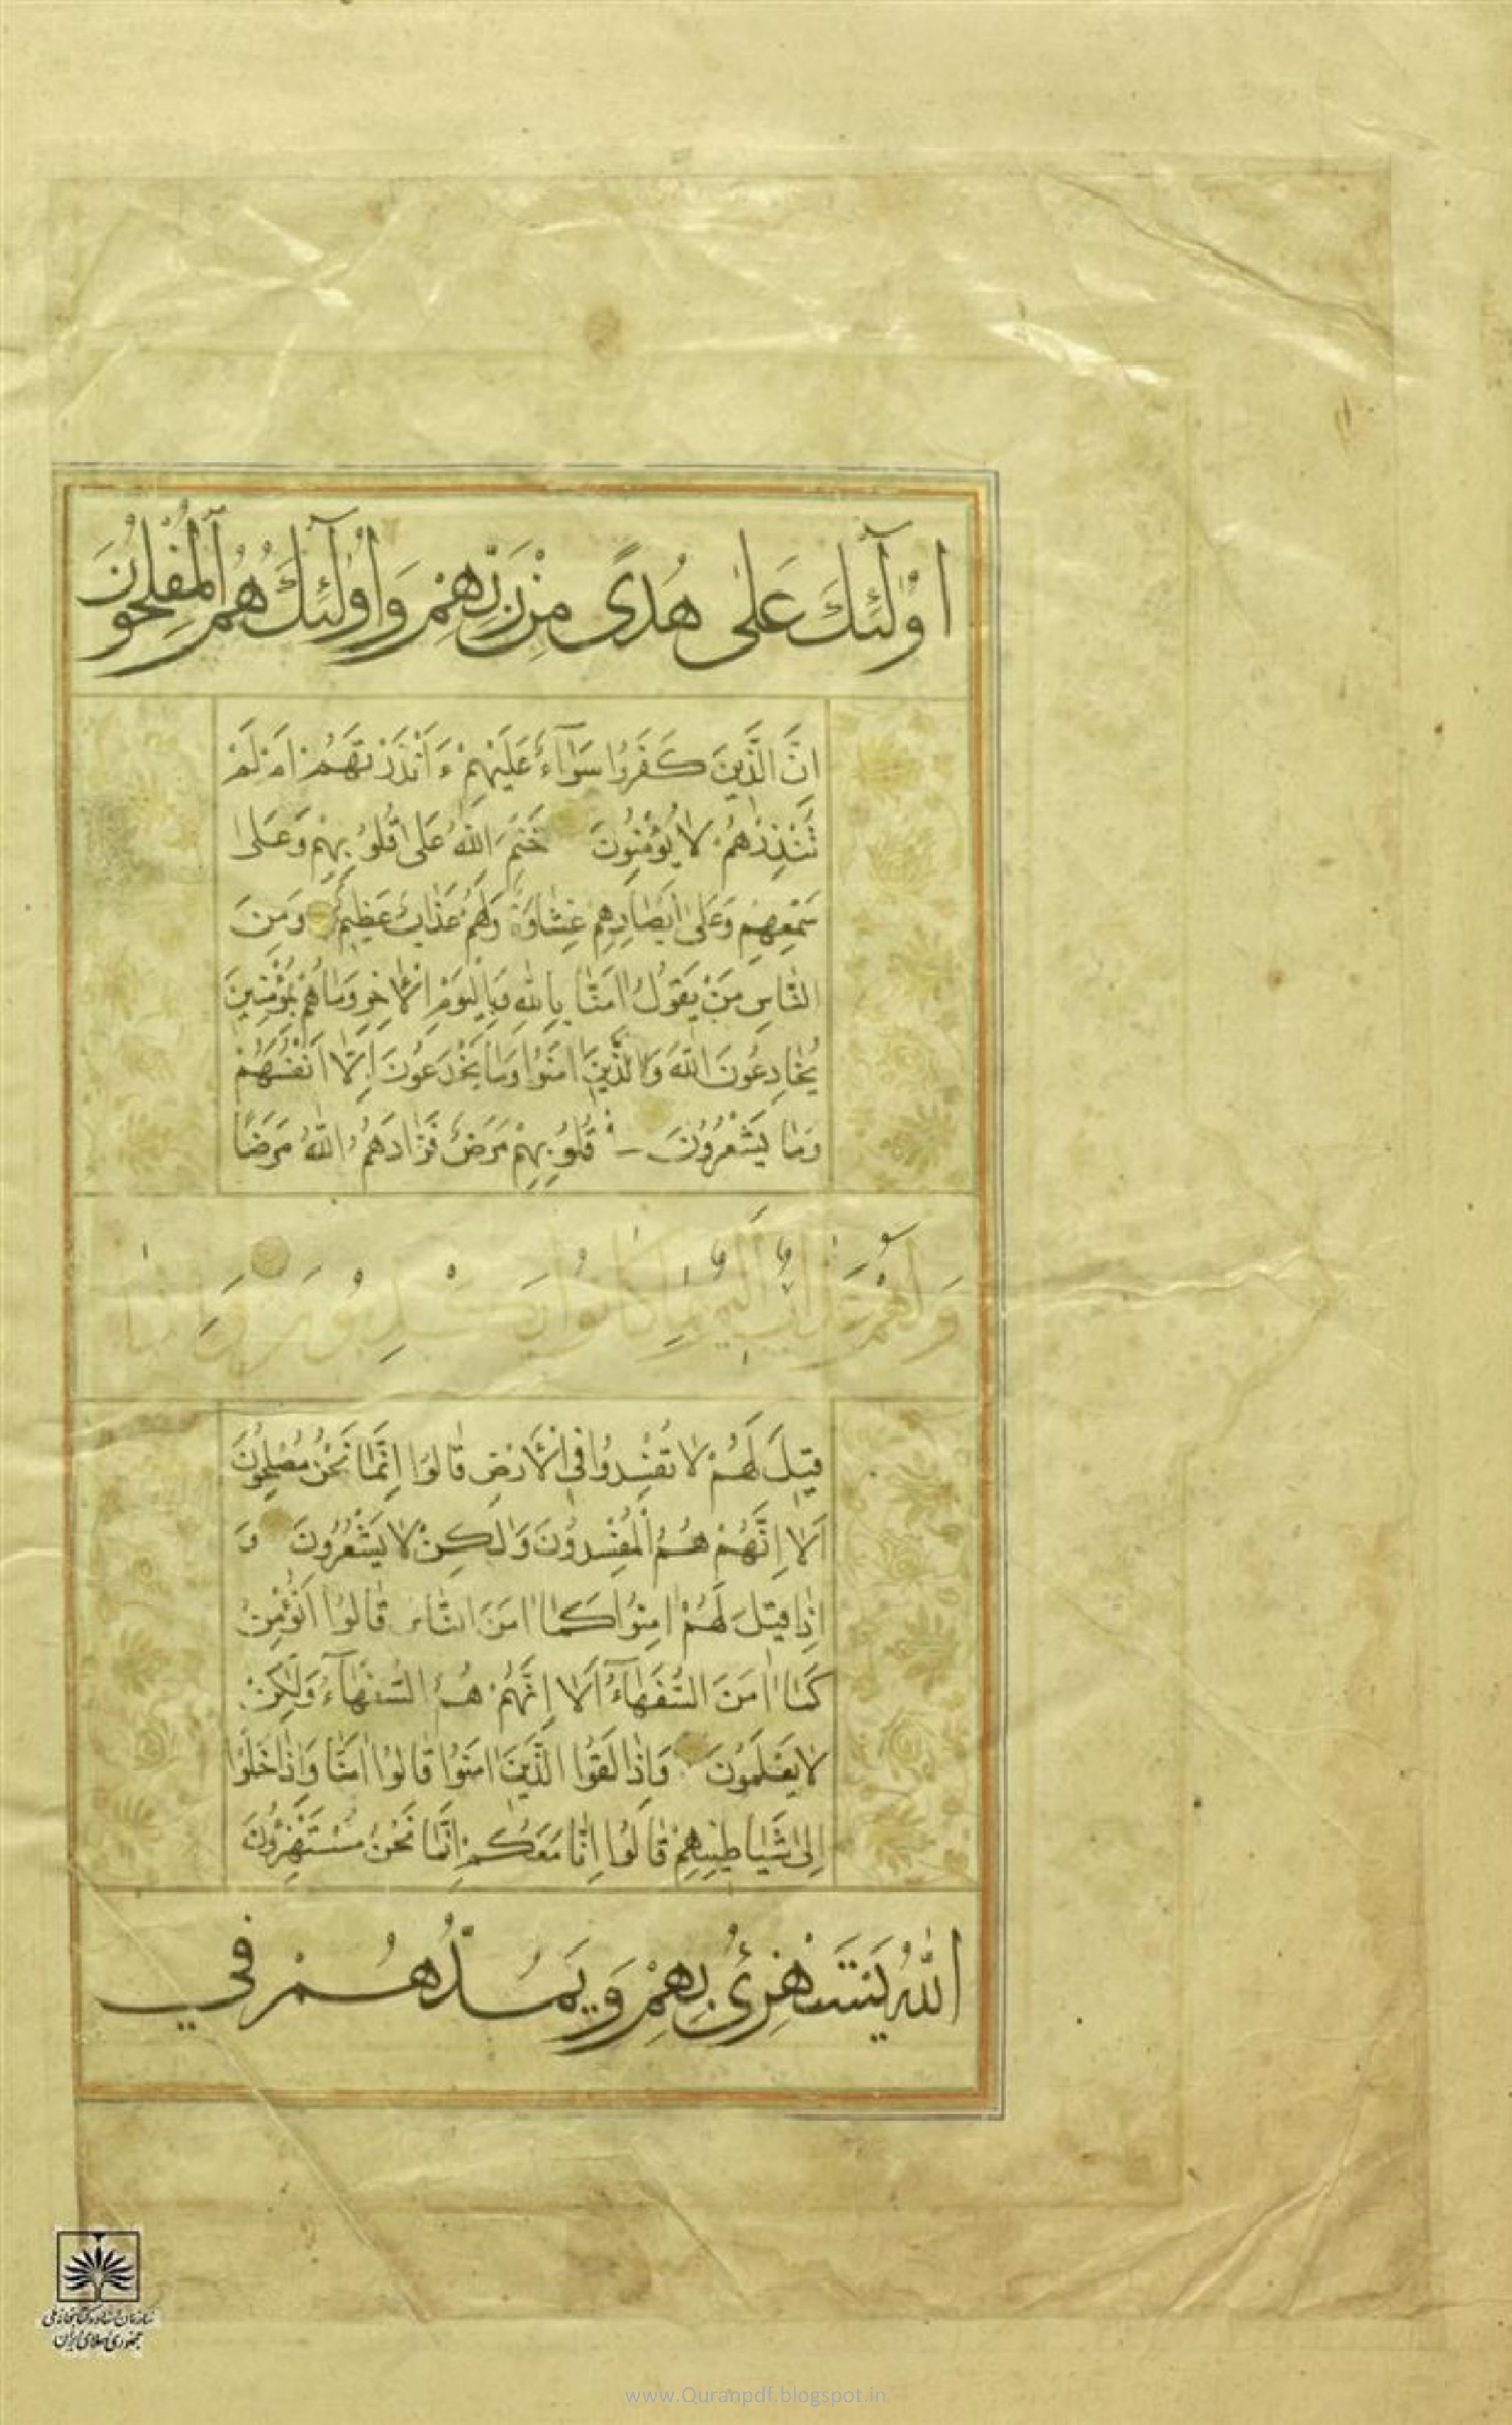 اُولٰٓئِكَ عَلٰى هُدًى مِنْ رَبِّهِمْ وَاُولٰٓئِكَ هُمُ الْمُفْلِحُونَ
اِنَّ الَّذِينَ كَفَرُوا سَوَآءٌ عَلَيْهِمْ ءَاَنْذَرْتَهُمْ اَمْ لَمْ
تُنْذِرْهُمْ لَا يُؤْمِنُونَ خَتَمَ اللهُ عَلٰى قُلُوبِهِمْ وَعَلٰى
سَمْعِهِمْ وَعَلٰى اَبْصَارِهِمْ غِشَاوَةٌ وَلَهُمْ عَذَابٌ عَظِيمٌ وَمِنَ
النَّاسِ مَنْ يَقُولُ اٰمَنَّا بِاللهِ وَبِالْيَوْمِ الْاٰخِرِ وَمَا هُمْ بِمُؤْمِنِينَ
يُخَادِعُونَ اللهَ وَالَّذِينَ اٰمَنُوا وَمَا يَخْدَعُونَ اِلَّا اَنْفُسَهُمْ
وَمَا يَشْعُرُونَ فِى قُلُوبِهِمْ مَرَضٌ فَزَادَهُمُ اللهُ مَرَضًا
وَلَهُمْ عَذَابٌ اَلِيمٌ بِمَا كَانُوا يَكْذِبُونَ وَاِذَا
قِيلَ لَهُمْ لَا تُفْسِدُوا فِى الْاَرْضِ قَالُوا اِنَّمَا نَحْنُ مُصْلِحُونَ
اَلَا اِنَّهُمْ هُمُ الْمُفْسِدُونَ وَلٰكِنْ لَا يَشْعُرُونَ وَ
اِذَا قِيلَ لَهُمْ اٰمِنُوا كَمَا اٰمَنَ النَّاسُ قَالُوا اَنُؤْمِنُ
كَمَا اٰمَنَ السُّفَهَآءُ اَلَا اِنَّهُمْ هُمُ السُّفَهَآءُ وَلٰكِنْ
لَا يَعْلَمُونَ وَاِذَا لَقُوا الَّذِينَ اٰمَنُوا قَالُوا اٰمَنَّا وَاِذَا خَلَوْا
اِلٰى شَيَاطِينِهِمْ قَالُوا اِنَّا مَعَكُمْ اِنَّمَا نَحْنُ مُسْتَهْزِؤُنَ
اَللهُ يَسْتَهْزِئُ بِهِمْ وَيَمُدُّهُمْ فِي
سازمان اسناد و کتابخانه ملی
جمهوری اسلامی ایران
www.Quranpdf.blogspot.in